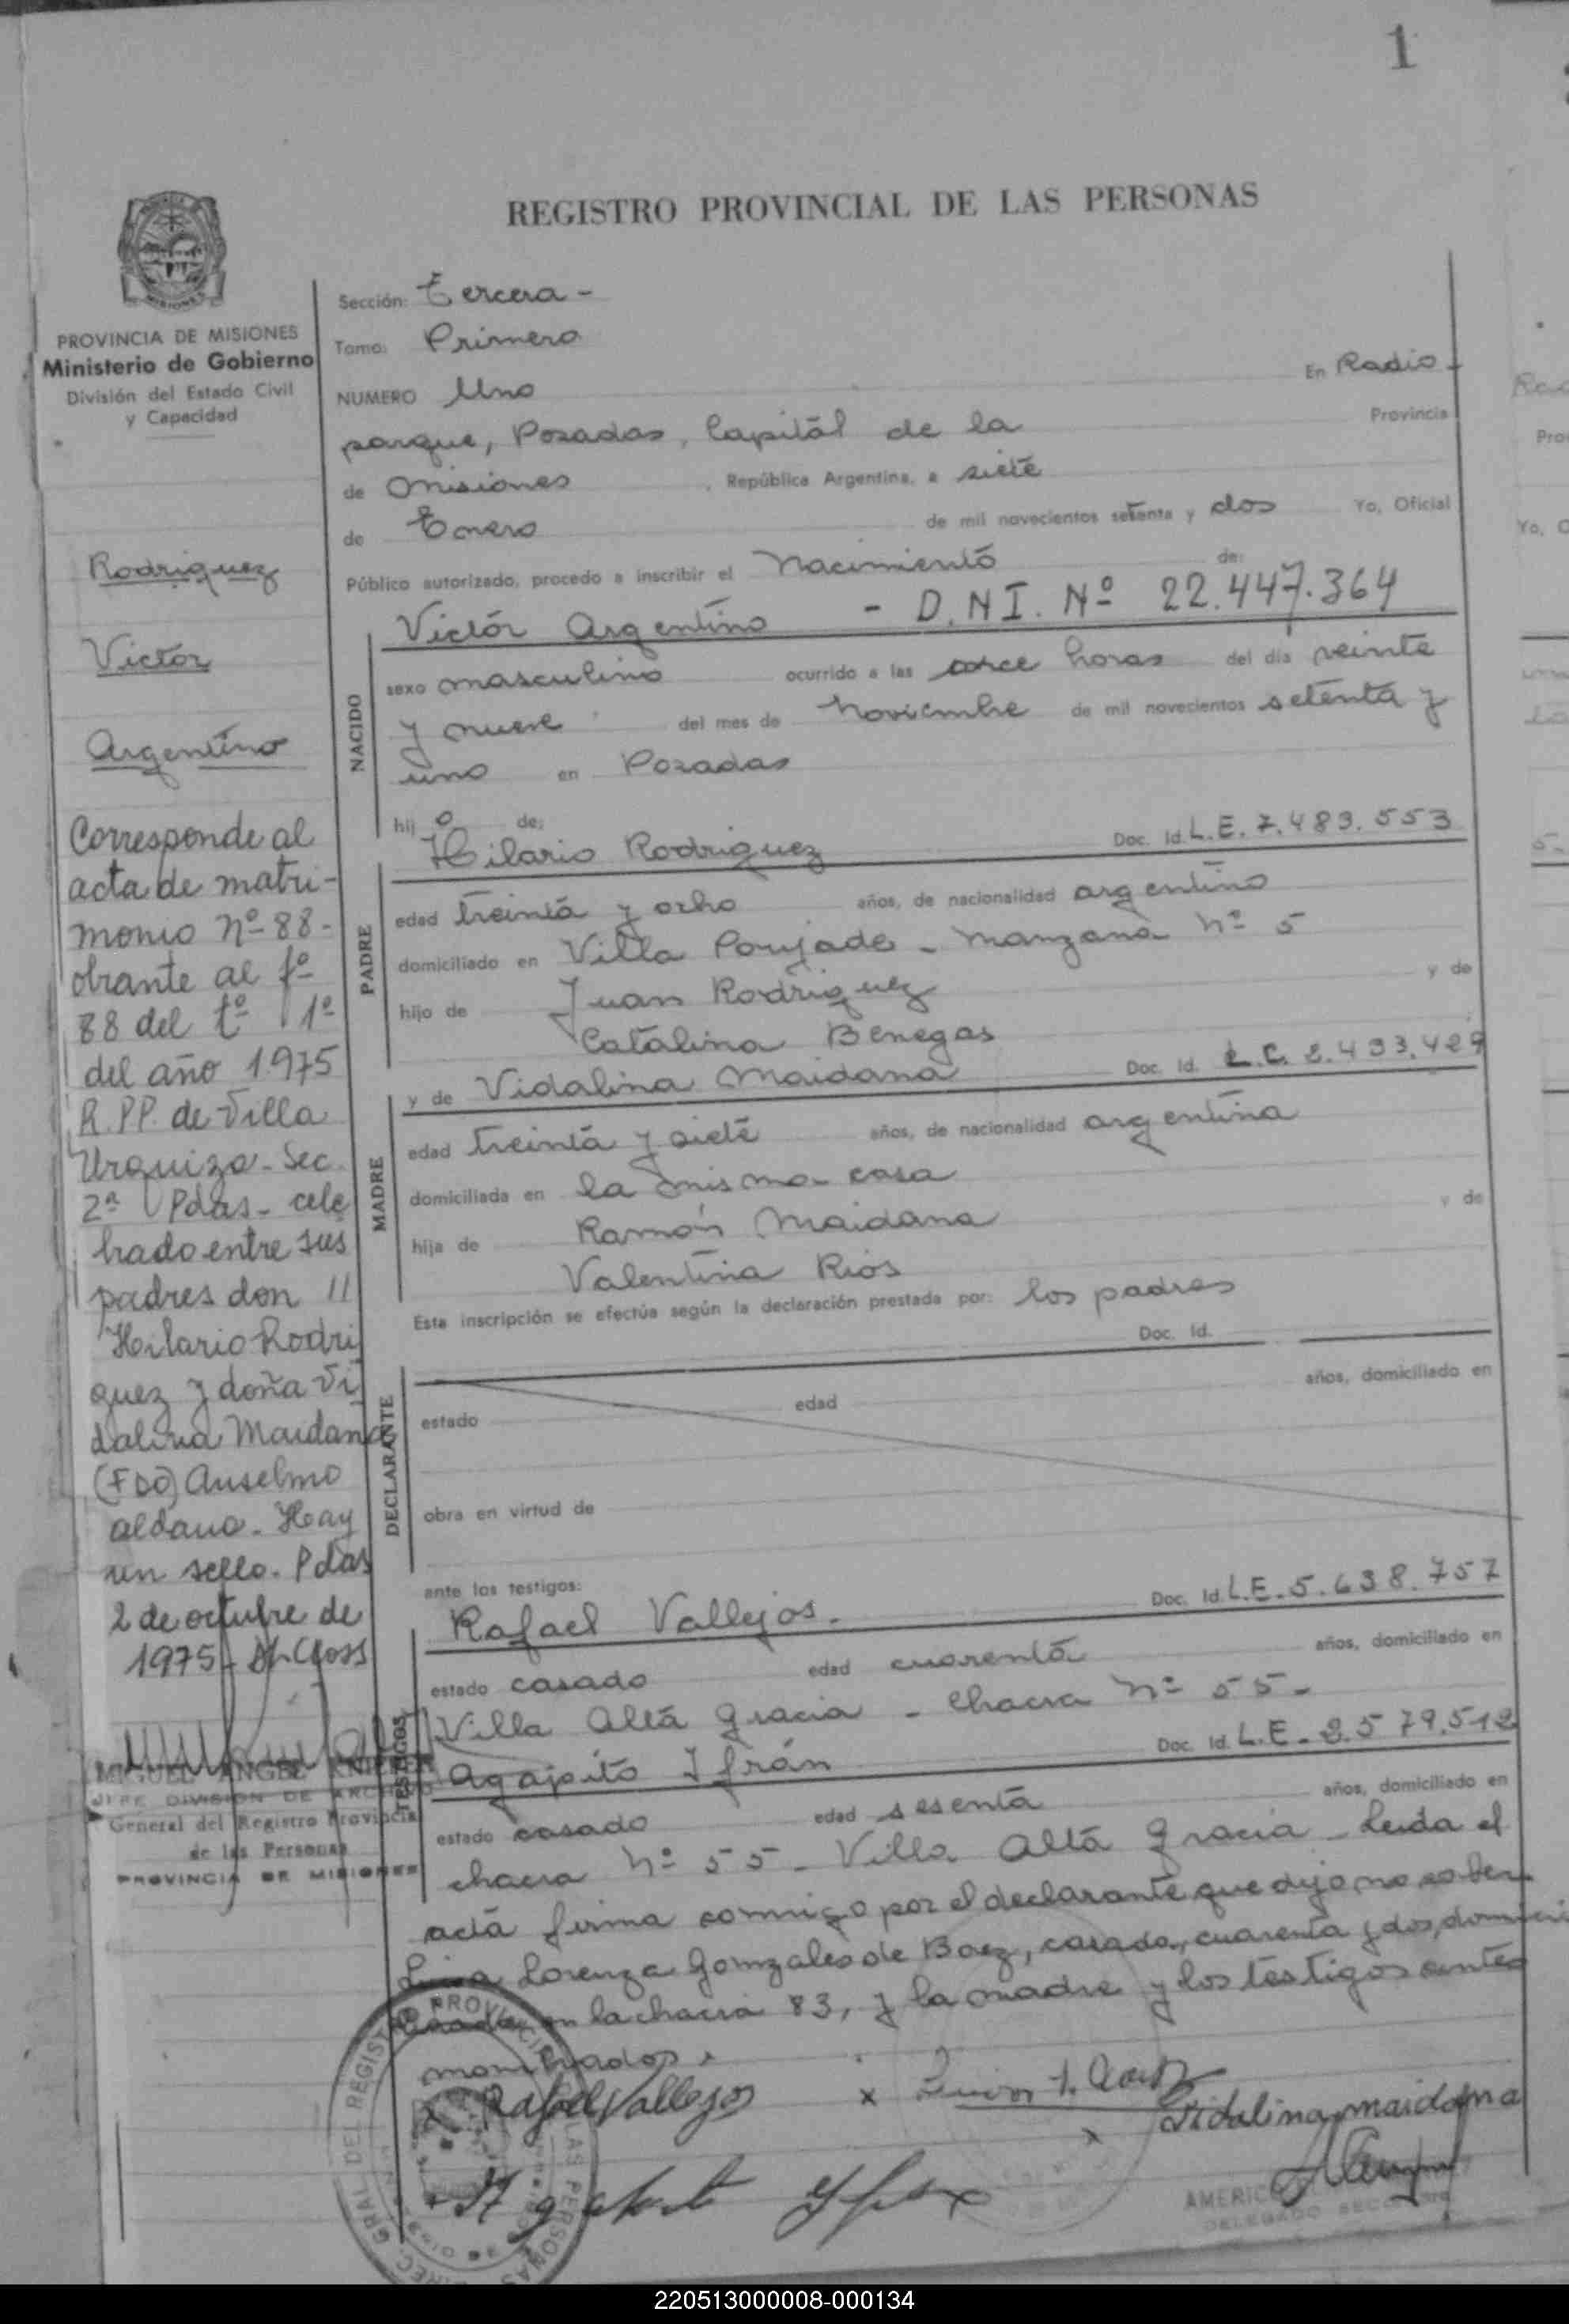 1
REGISTRO PROVINCIAL DE LAS PERSONAS
PROVINCIA DE MISIONES
Ministerio de Gobierno
División del Estado Civil
y Capacidad
Rodriguez
Victor
Argentino
Corresponde al
acta de matri-
monio Nº 88-
obrante al fº
88 del tº 1º
del año 1.975
R.PP. de Villa
Urquiza - Sec.
2ª Pdas - cele
brado entre sus
padres don //
Hilario Rodri
guez y doña Vi
dalina Maidana
(FDO) Anselmo
Aldana. Hay
un sello. Pdas
2 de octubre de
1975
MIGUEL ANGEL
JEFE DIVISION DE ARCHIVO
General del Registro Provincial
de las Personas
PROVINCIA DE MISIONES
Sección: Tercera -
Tomo: Primero
NUMERO Uno En Radio
parque, Posadas, Capital de la Provincia
de Misiones , República Argentina, a siete
de Enero de mil novecientos setenta y dos Yo, Oficial
Público autorizado, procedo a inscribir el Nacimiento de:
Victor Argentino - D.N.I. Nº 22.447.364
NACIDO
sexo masculino ocurrido a las once horas del día veinte
y nueve del mes de Noviembre de mil novecientos setenta y
uno en Posadas
hij o de:
Hilario Rodriguez Doc. Id. L.E. 7.483.553
PADRE
edad treinta y ocho años, de nacionalidad argentino
domiciliado en Villa Poujade - Manzana Nº 5
hijo de Juan Rodriguez y de
Catalina Benegas
y de Vidalina Maidana Doc. Id. L.C. 2.493.429
MADRE
edad treinta y siete años, de nacionalidad argentina
domiciliada en la misma casa
hija de Ramón Maidana y de
Valentina Rios
Esta inscripción se efectúa según la declaración prestada por: los padres
Doc. Id.
DECLARANTE
estado edad años, domiciliado en
obra en virtud de
ante los testigos:
Rafael Vallejos. Doc. Id. L.E. 5.638.757
TESTIGOS
estado casado edad cuarenta años, domiciliado en
Villa Alta Gracia - Chacra Nº 55-
Agapito Ifrán Doc. Id. L.E. 2.579.512
estado casado edad sesenta años, domiciliado en
chacra Nº 55 - Villa Alta Gracia - Leida el
acta firma conmigo por el declarante que dijo no saber
Lorenza Gomzales de Baez, casada, cuarenta y dos, domici
en la chacra 83, y la madre y los testigos antes
mombrados.
Rafael Vallejos
x
Vidalina maidana
x
DELEGADO
220513000008-000134